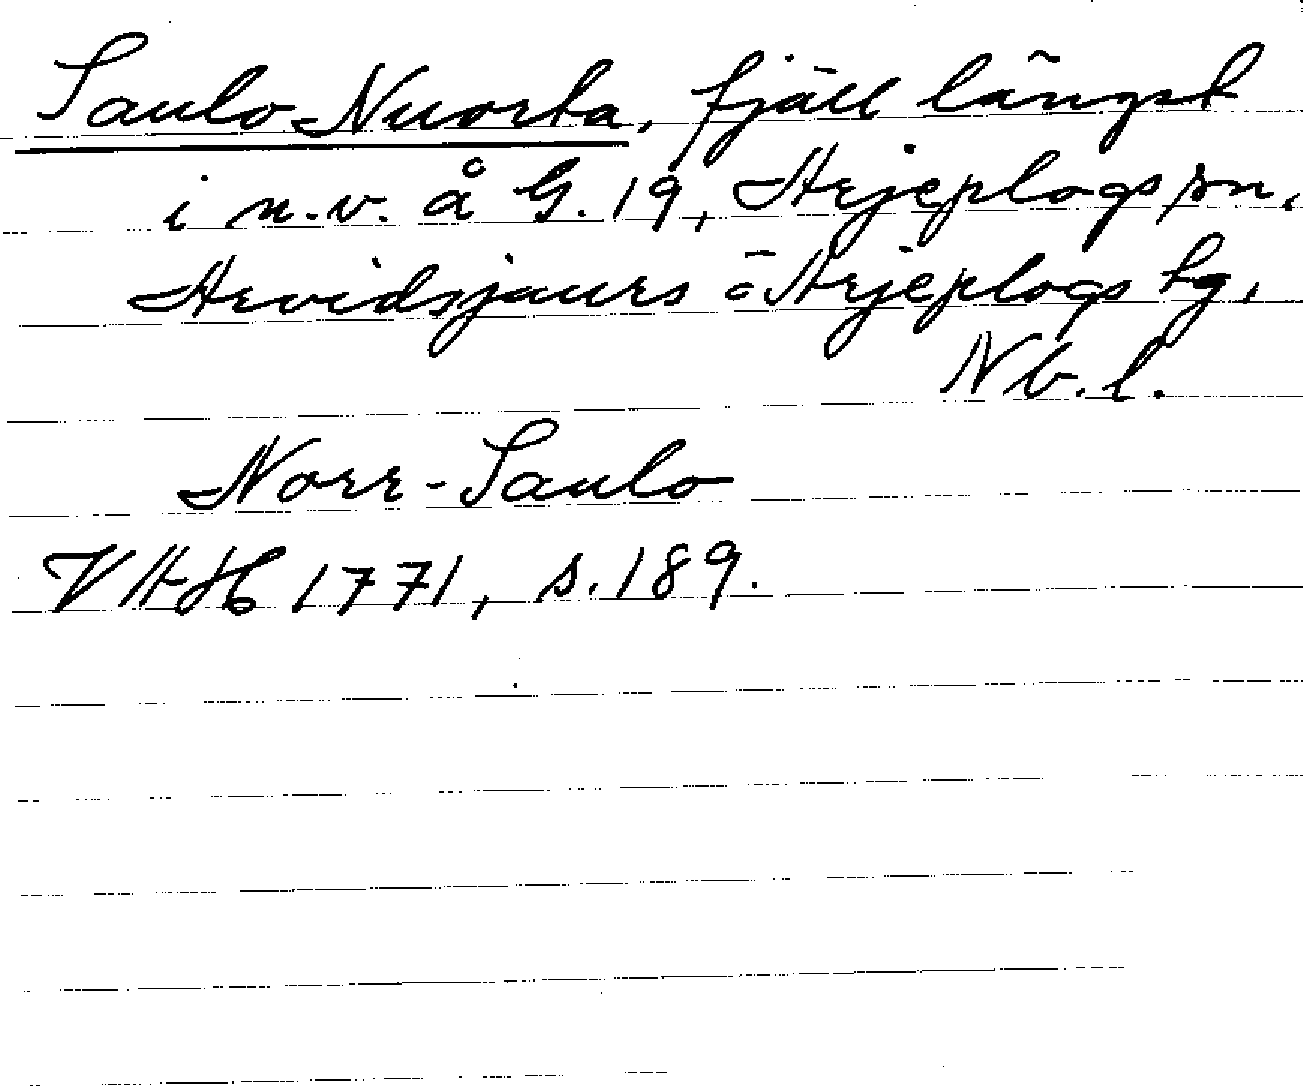 Saulo-Nuorta, fjäll längst
i n.v. å G.19, Arjeplogs sn,
Arvidsjaurs o Arjeplogs tg,
Nb.l.
Norr-Saulo
VAH 1771, s.189.